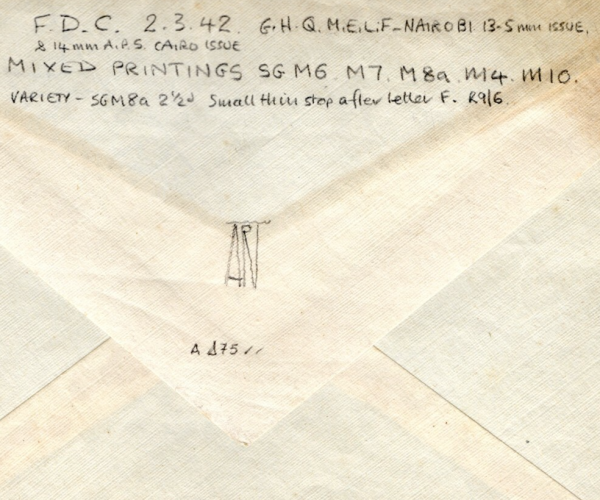 F.D.C. 2.3.42. G.H.Q. M.E.L.F-NAIROBI 13·5mm ISSUE,
& 14mm A.P.S. CAIRO ISSUE
MIXED PRINTINGS SG M6. M7. M8a. M4. M10.
VARIETY - SGM8a 2½d Small thin stop after letter F. R9/6.